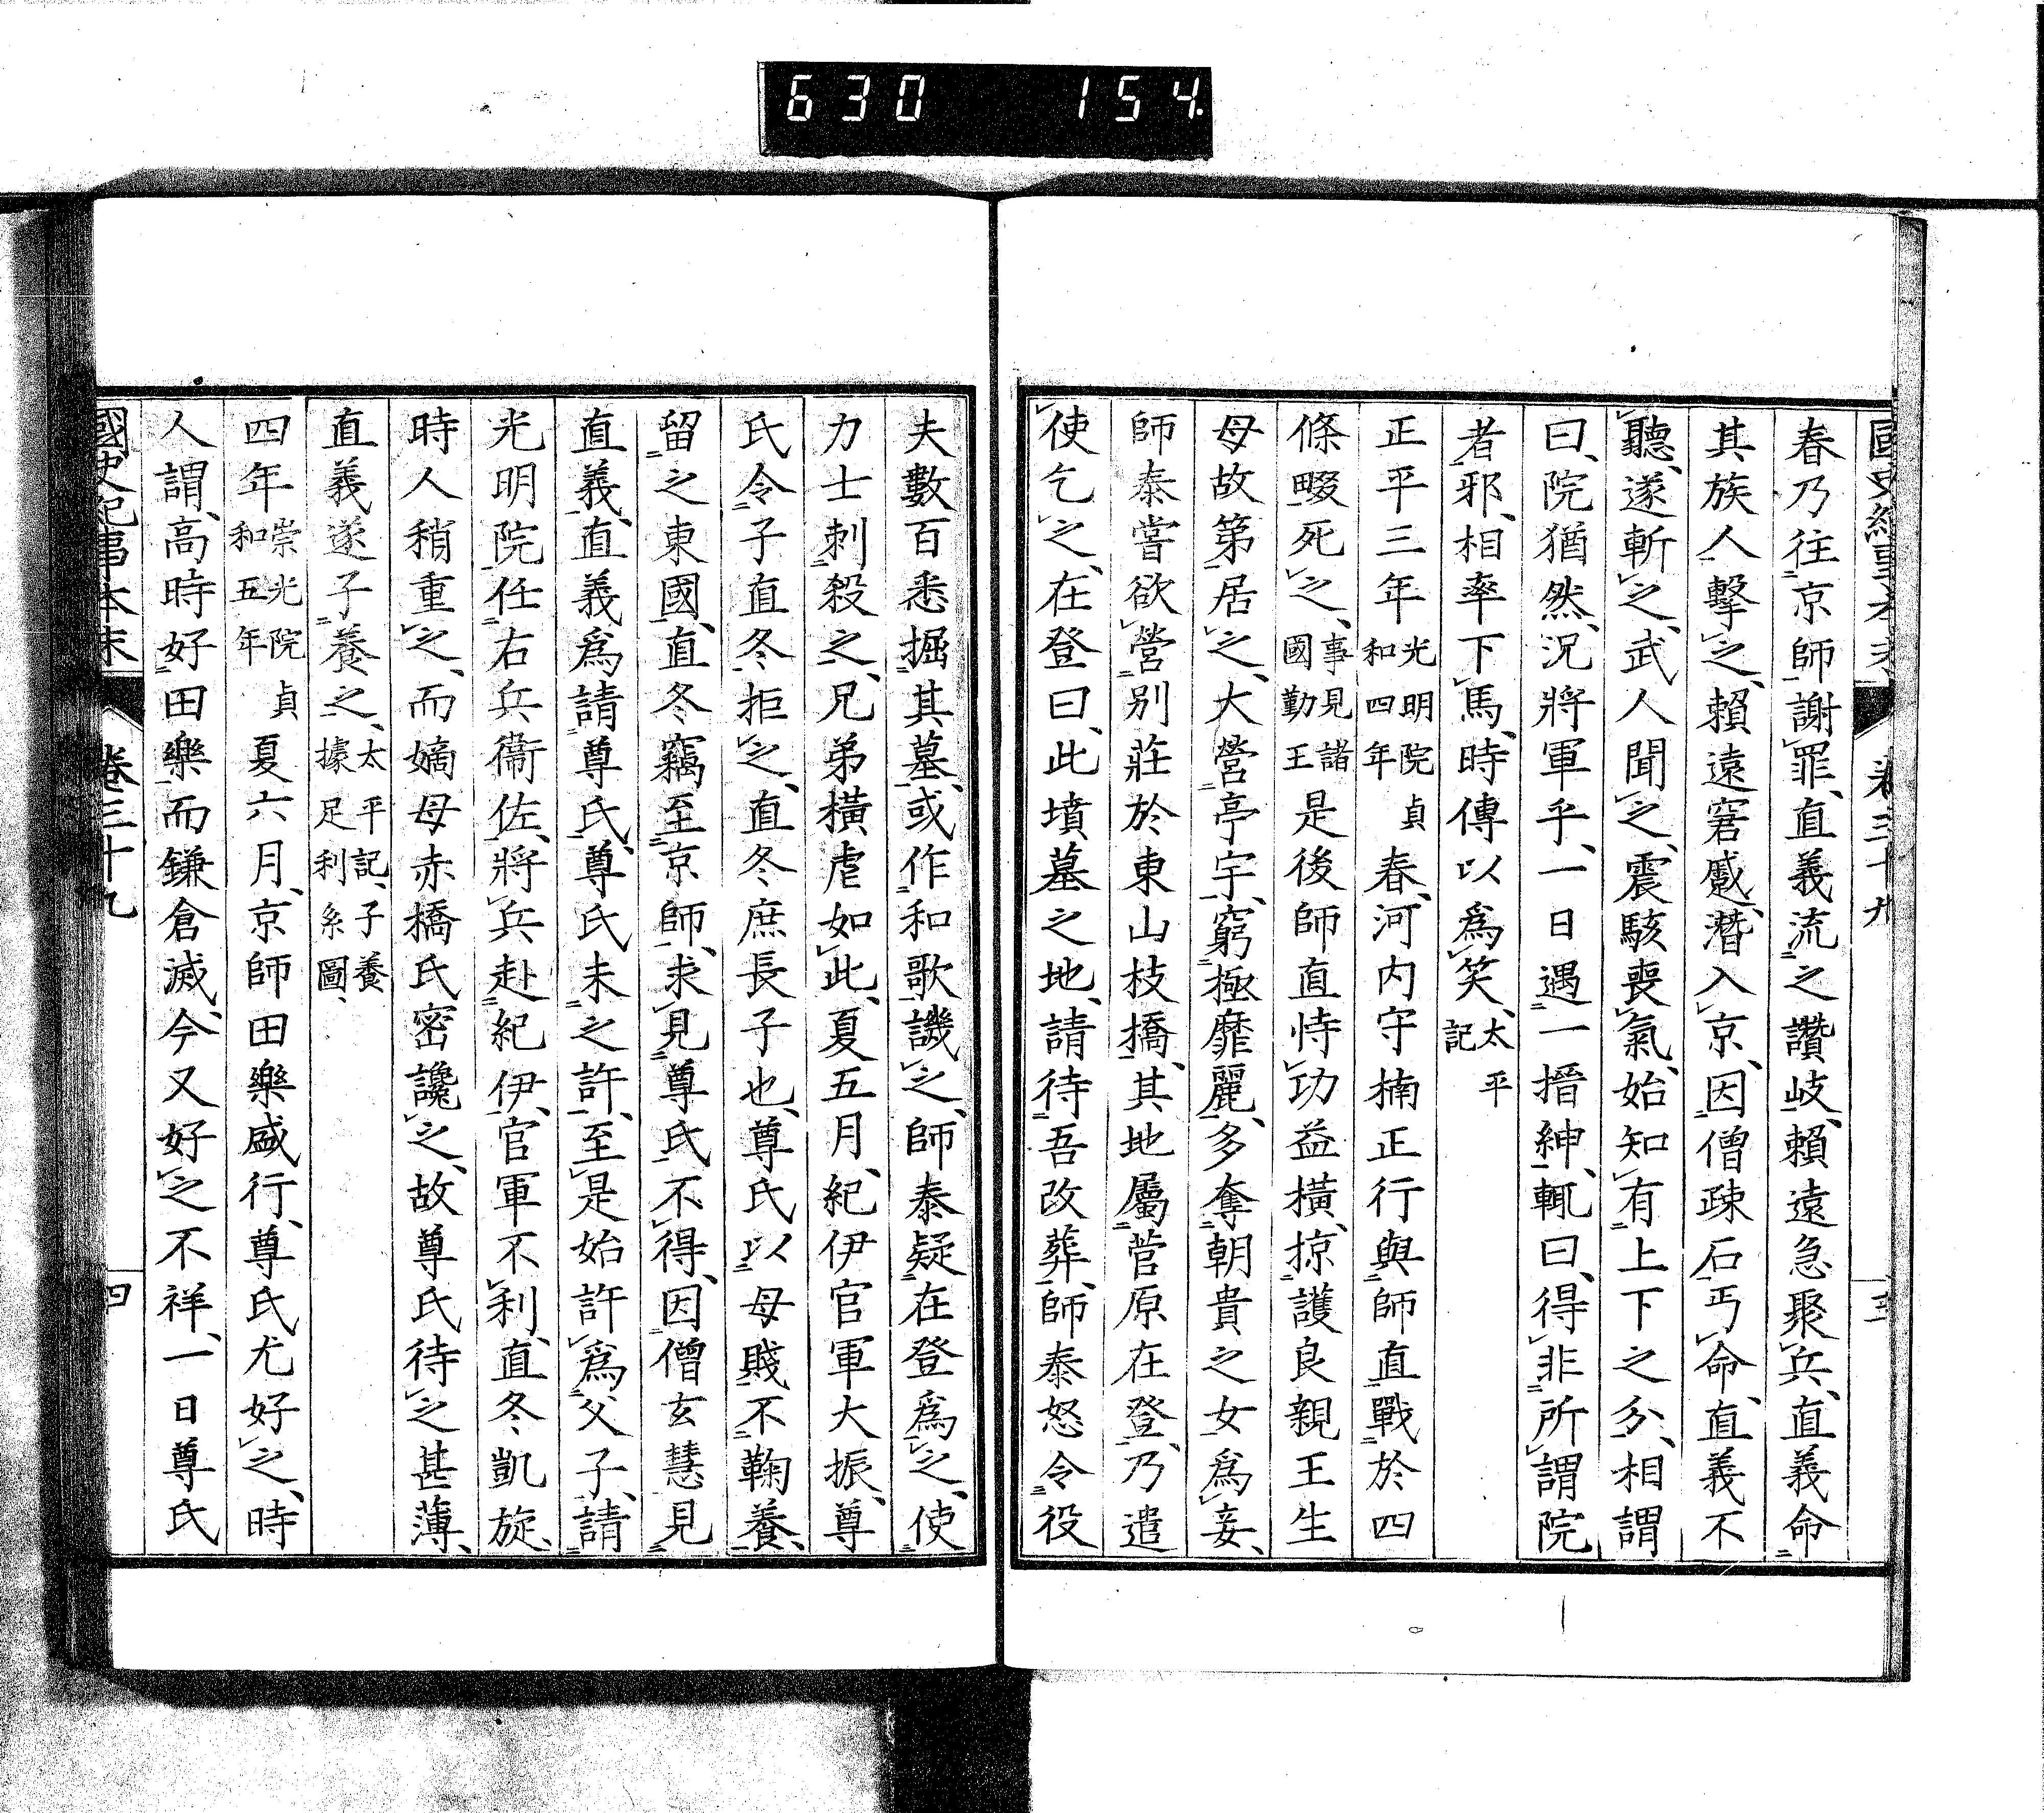 630 154
國史紀事本末 卷三十九 三
春乃往京師謝罪、直義流之讚岐、賴遠急聚兵、直義命
其族人擊之、賴遠窘蹙、潛入京、因僧疎石丐命、直義不
聽、遂斬之、武人聞之、震駭喪氣、始知有上下之分、相謂
曰、院猶然、況將軍乎、一日遇一搢紳、輒曰、得非所謂院
者邪、相率下馬、時傳以爲笑、太平記
正平三年光明院貞和四年春、河内守楠正行與師直戰於四
條畷死之、事見諸國勤王是後師直恃功益橫、掠護良親王生
母故第居之、大營亭宇、窮極靡麗、多奪朝貴之女爲妾、
師泰嘗欲營別莊於東山枝橋、其地屬菅原在登、乃遣
使乞之、在登曰、此墳墓之地、請待吾改葬、師泰怒令役
夫數百悉掘其墓、或作和歌譏之、師泰疑在登爲之、使
力士刺殺之、兄弟橫虐如此、夏五月、紀伊官軍大振、尊
氏令子直冬拒之、直冬庶長子也、尊氏以母賤不鞠養、
留之東國、直冬竊至京師、求見尊氏不得、因僧玄慧見
直義、直義爲請尊氏、尊氏未之許、至是始許爲父子、請
光明院任右兵衞佐、將兵赴紀伊、官軍不利、直冬凱旋、
時人稍重之、而嫡母赤橋氏密讒之、故尊氏待之甚薄、
直義遂子養之、太平記、子養據足利系圖、
四年崇光院貞和五年夏六月、京師田樂盛行、尊氏尤好之、時
人謂、高時好田樂而鎌倉滅、今又好之不祥、一日尊氏
國史紀事本末 卷三十九 四